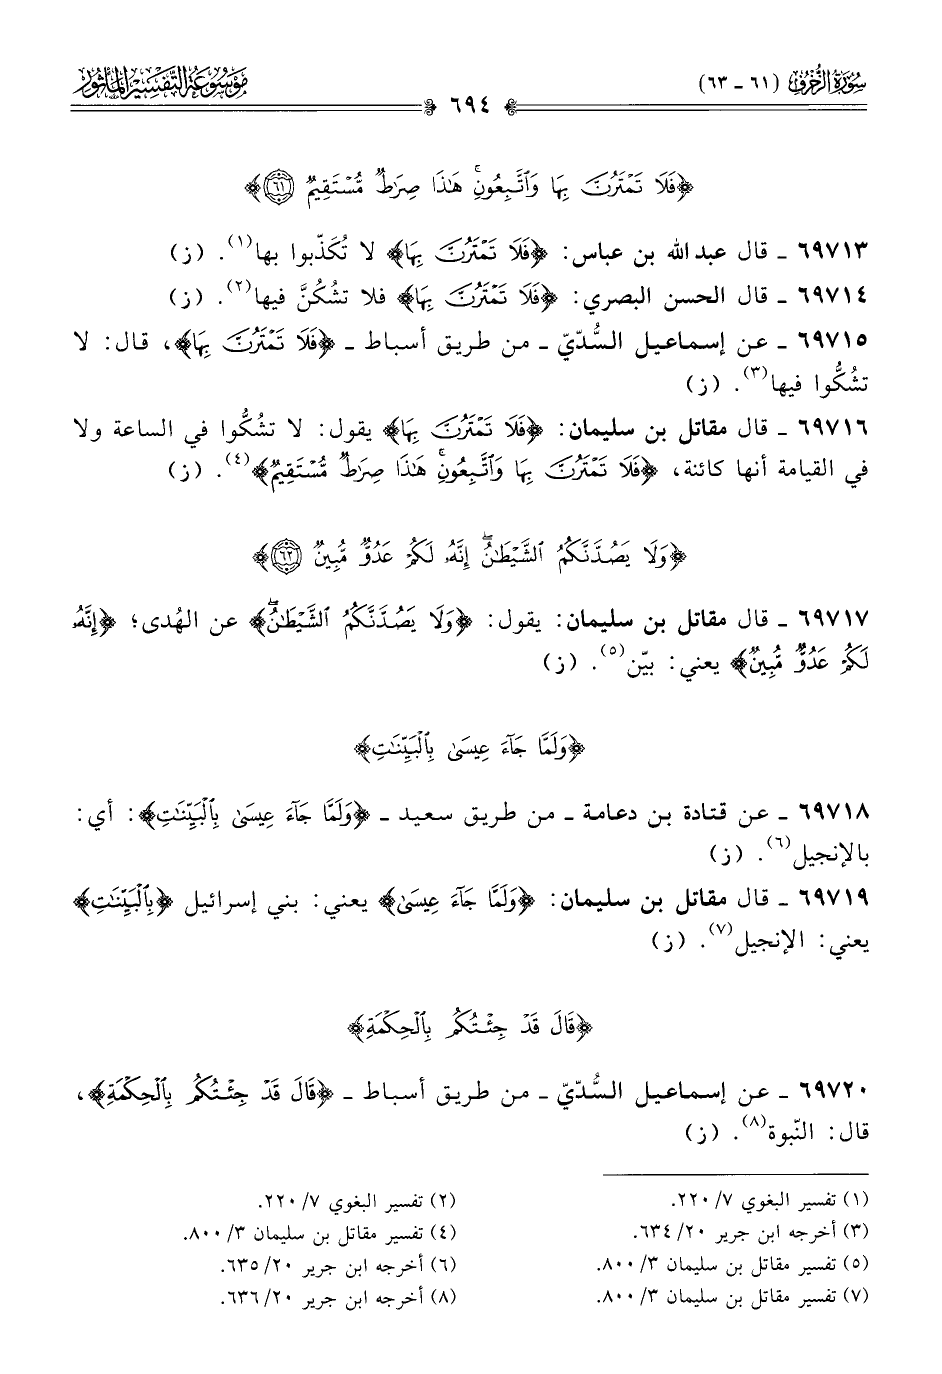 سُورَةُ الزُّخْرُفِ (٦١ - ٦٣)
٦٩٤
مَوْسُوعَةُ التَّفْسِيرِ المَأْثُورِ
﴿فَلَا تَمْتَرُنَّ بِهَا وَٱتَّبِعُونِۚ هَٰذَا صِرَٰطٌ مُّسْتَقِيمٌ ۝٦١﴾
٦٩٧١٣ - قال عبد الله بن عباس: ﴿فَلَا تَمْتَرُنَّ بِهَا﴾ لا تُكَذّبوا بها(١). (ز)
٦٩٧١٤ - قال الحسن البصري: ﴿فَلَا تَمْتَرُنَّ بِهَا﴾ فلا تشُكُنَّ فيها(٢). (ز)
٦٩٧١٥ - عن إسماعيل السُّدّيّ - من طريق أسباط - ﴿فَلَا تَمْتَرُنَّ بِهَا﴾، قال: لا
تشُكُّوا فيها(٣). (ز)
٦٩٧١٦ - قال مقاتل بن سليمان: ﴿فَلَا تَمْتَرُنَّ بِهَا﴾ يقول: لا تشُكُّوا في الساعة ولا
في القيامة أنها كائنة، ﴿فَلَا تَمْتَرُنَّ بِهَا وَٱتَّبِعُونِۚ هَٰذَا صِرَٰطٌ مُّسْتَقِيمٌ﴾(٤). (ز)
﴿وَلَا يَصُدَّنَّكُمُ ٱلشَّيْطَٰنُۖ إِنَّهُۥ لَكُمْ عَدُوٌّ مُّبِينٌ ۝٦٢﴾
٦٩٧١٧ - قال مقاتل بن سليمان: يقول: ﴿وَلَا يَصُدَّنَّكُمُ ٱلشَّيْطَٰنُۖ﴾ عن الهُدى؛ ﴿إِنَّهُۥ
لَكُمْ عَدُوٌّ مُّبِينٌ﴾ يعني: بيّن(٥). (ز)
﴿وَلَمَّا جَآءَ عِيسَىٰ بِٱلْبَيِّنَٰتِ﴾
٦٩٧١٨ - عن قتادة بن دعامة - من طريق سعيد - ﴿وَلَمَّا جَآءَ عِيسَىٰ بِٱلْبَيِّنَٰتِ﴾: أي:
بالإنجيل(٦). (ز)
٦٩٧١٩ - قال مقاتل بن سليمان: ﴿وَلَمَّا جَآءَ عِيسَىٰ﴾ يعني: بني إسرائيل ﴿بِٱلْبَيِّنَٰتِ﴾
يعني: الإنجيل(٧). (ز)
﴿قَالَ قَدْ جِئْتُكُم بِٱلْحِكْمَةِ﴾
٦٩٧٢٠ - عن إسماعيل السُّدّيّ - من طريق أسباط - ﴿قَالَ قَدْ جِئْتُكُم بِٱلْحِكْمَةِ﴾،
قال: النّبوة(٨). (ز)
(١) تفسير البغوي ٧/ ٢٢٠.
(٢) تفسير البغوي ٧/ ٢٢٠.
(٣) أخرجه ابن جرير ٢٠/ ٦٣٤.
(٤) تفسير مقاتل بن سليمان ٣/ ٨٠٠.
(٥) تفسير مقاتل بن سليمان ٣/ ٨٠٠.
(٦) أخرجه ابن جرير ٢٠/ ٦٣٥.
(٧) تفسير مقاتل بن سليمان ٣/ ٨٠٠.
(٨) أخرجه ابن جرير ٢٠/ ٦٣٦.